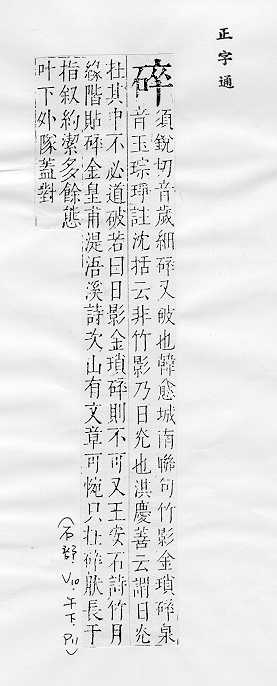 正字通
碎
須銳切音歲細碎又破也韓愈城南聯句竹影金瑣碎泉
音玉琮琤註沈括云非竹影乃日光也洪慶善云謂日光
在其中不必道破若曰日影金瑣碎則不可又王安石詩竹月
緣階貼碎金皇甫湜浯溪詩次山有文章可惋只在碎狀長于
指叙約潔多餘態
叶下外隊蓋對
(石部 V10.午下.P11)